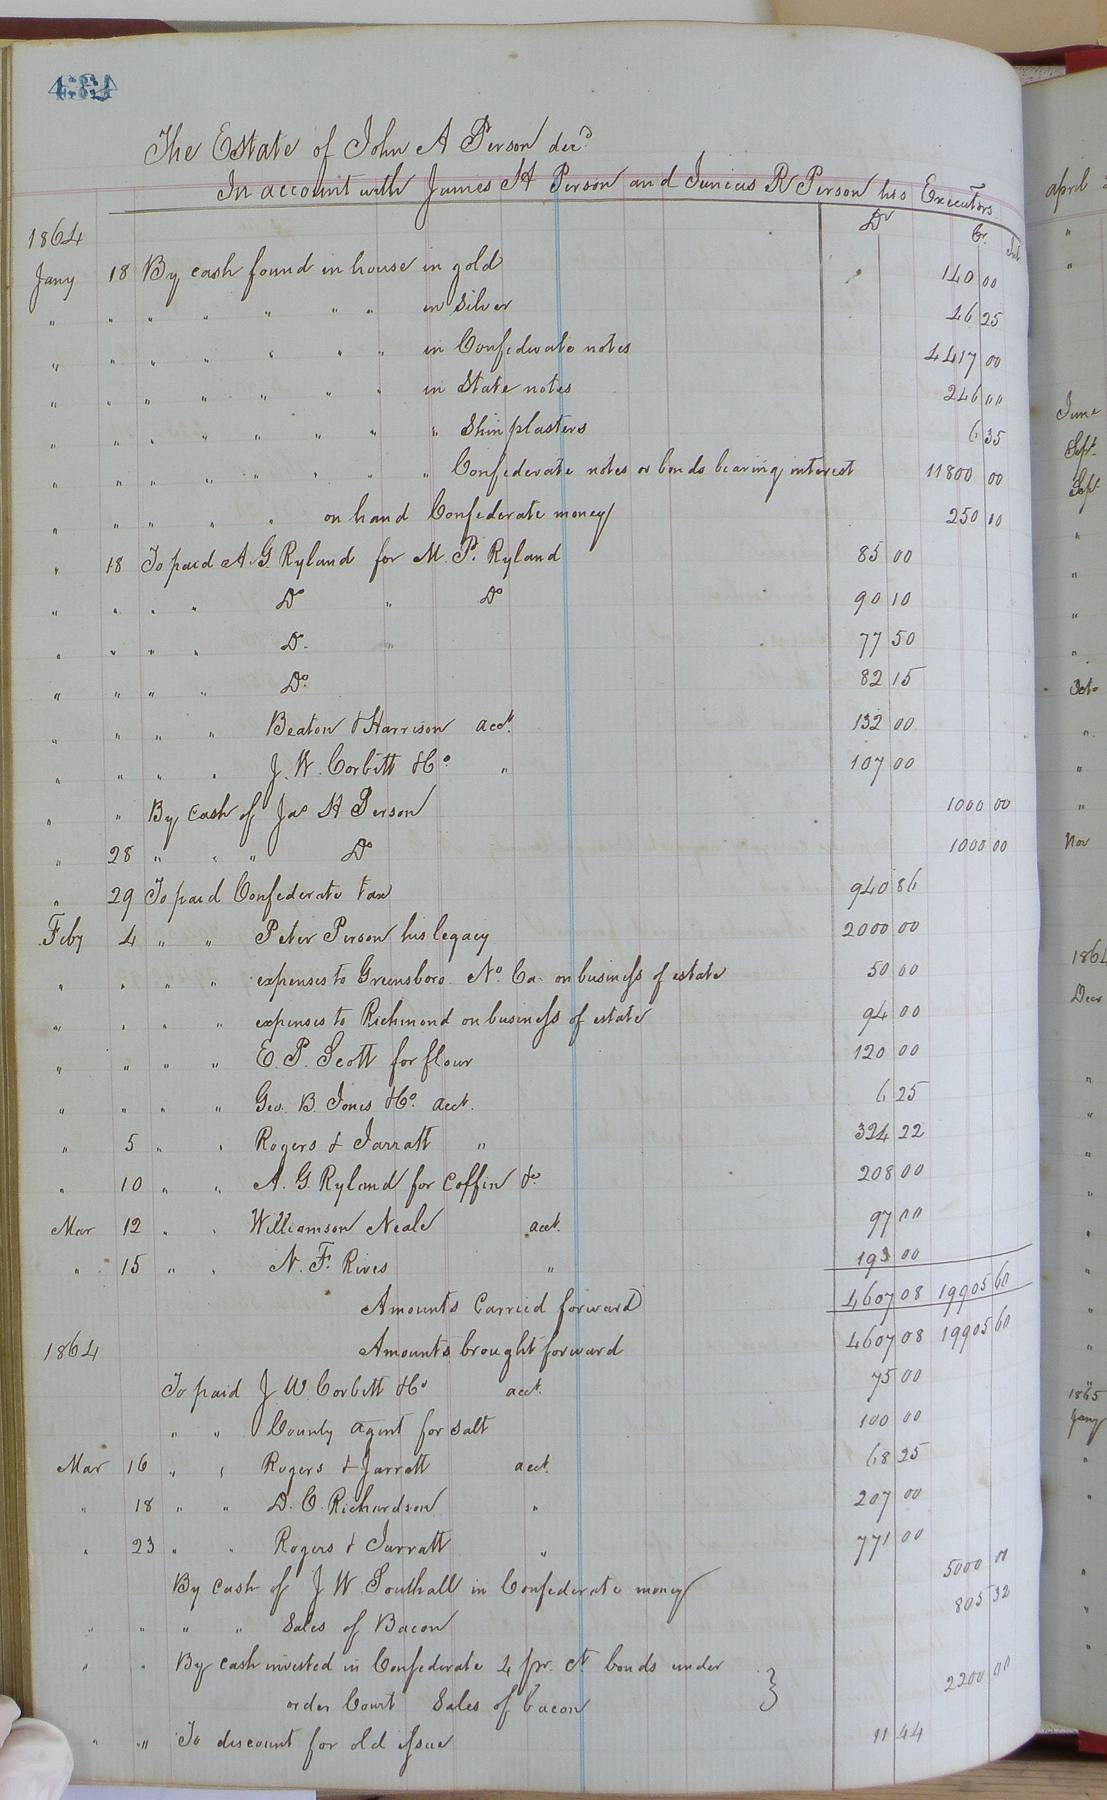 434
The Estate of John A Person decd
In account with James H Person and Junius R Person his Executors
1864 Dr Cr
Jany 18 By cash found in house in gold 140 00
" " " " " " " in silver 46 25
" " " " " " " in Confederate notes 4417 00
" " " " " " " in State notes 246 00
" " " " " " " " Shinplasters 6 35
" " " " " " " " Confederate notes or bonds bearing interest 11800 00
" " " " " on hand Confederate money 250 00
" 18 To paid A. G. Ryland for M. P. Ryland 85 00
" " " " Do " Do 90 10
" " " " Do " 77 50
" " " " Do 82 15
" " " " Beaton & Harrison acct. 132 00
" " " " J. W. Corbitt & Co " 107 00
" " By cash of Jas H Person 1000 00
" 28 " " " Do 1000 00
" 29 To paid Confederate tax 940 86
Feby 4 " " Peter Person his legacy 2000 00
" " " " expenses to Greensboro No. Ca. on business of estate 50 00
" " " " expenses to Richmond on business of estate 94 00
" " " " E. P. Scott for flour 120 00
" " " " Geo. B. Jones & Co. acct. 6 25
" 5 " " Rogers & Jarratt " 324 22
" 10 " " A. G. Ryland for coffin &c 208 00
Mar 12 " " Williamson Neale acct. 97 00
" 15 " " N. F. Rives " 193 00
Amounts Carried forward 4607 08 19905 60
1864 Amounts brought forward 4607 08 19905 60
To paid J W Corbitt & Co acct. 75 00
" " County agent for salt 100 00
Mar 16 " " Rogers & Jarratt acct. 68 25
" 18 " " D. C. Richardson " 207 00
" 23 " " Rogers & Jarratt " 771 00
By cash of J W Southall in Confederate money 5000 00
" " " " Sales of Bacon 805 32
" " By cash invested in Confederate 4 pr. ct bonds under
order Court Sales of bacon 2200 00
" " To discount for old issue 11 44
april
June
Sept.
Sept
Octo
Nov
1864
Decr
1865
Jany